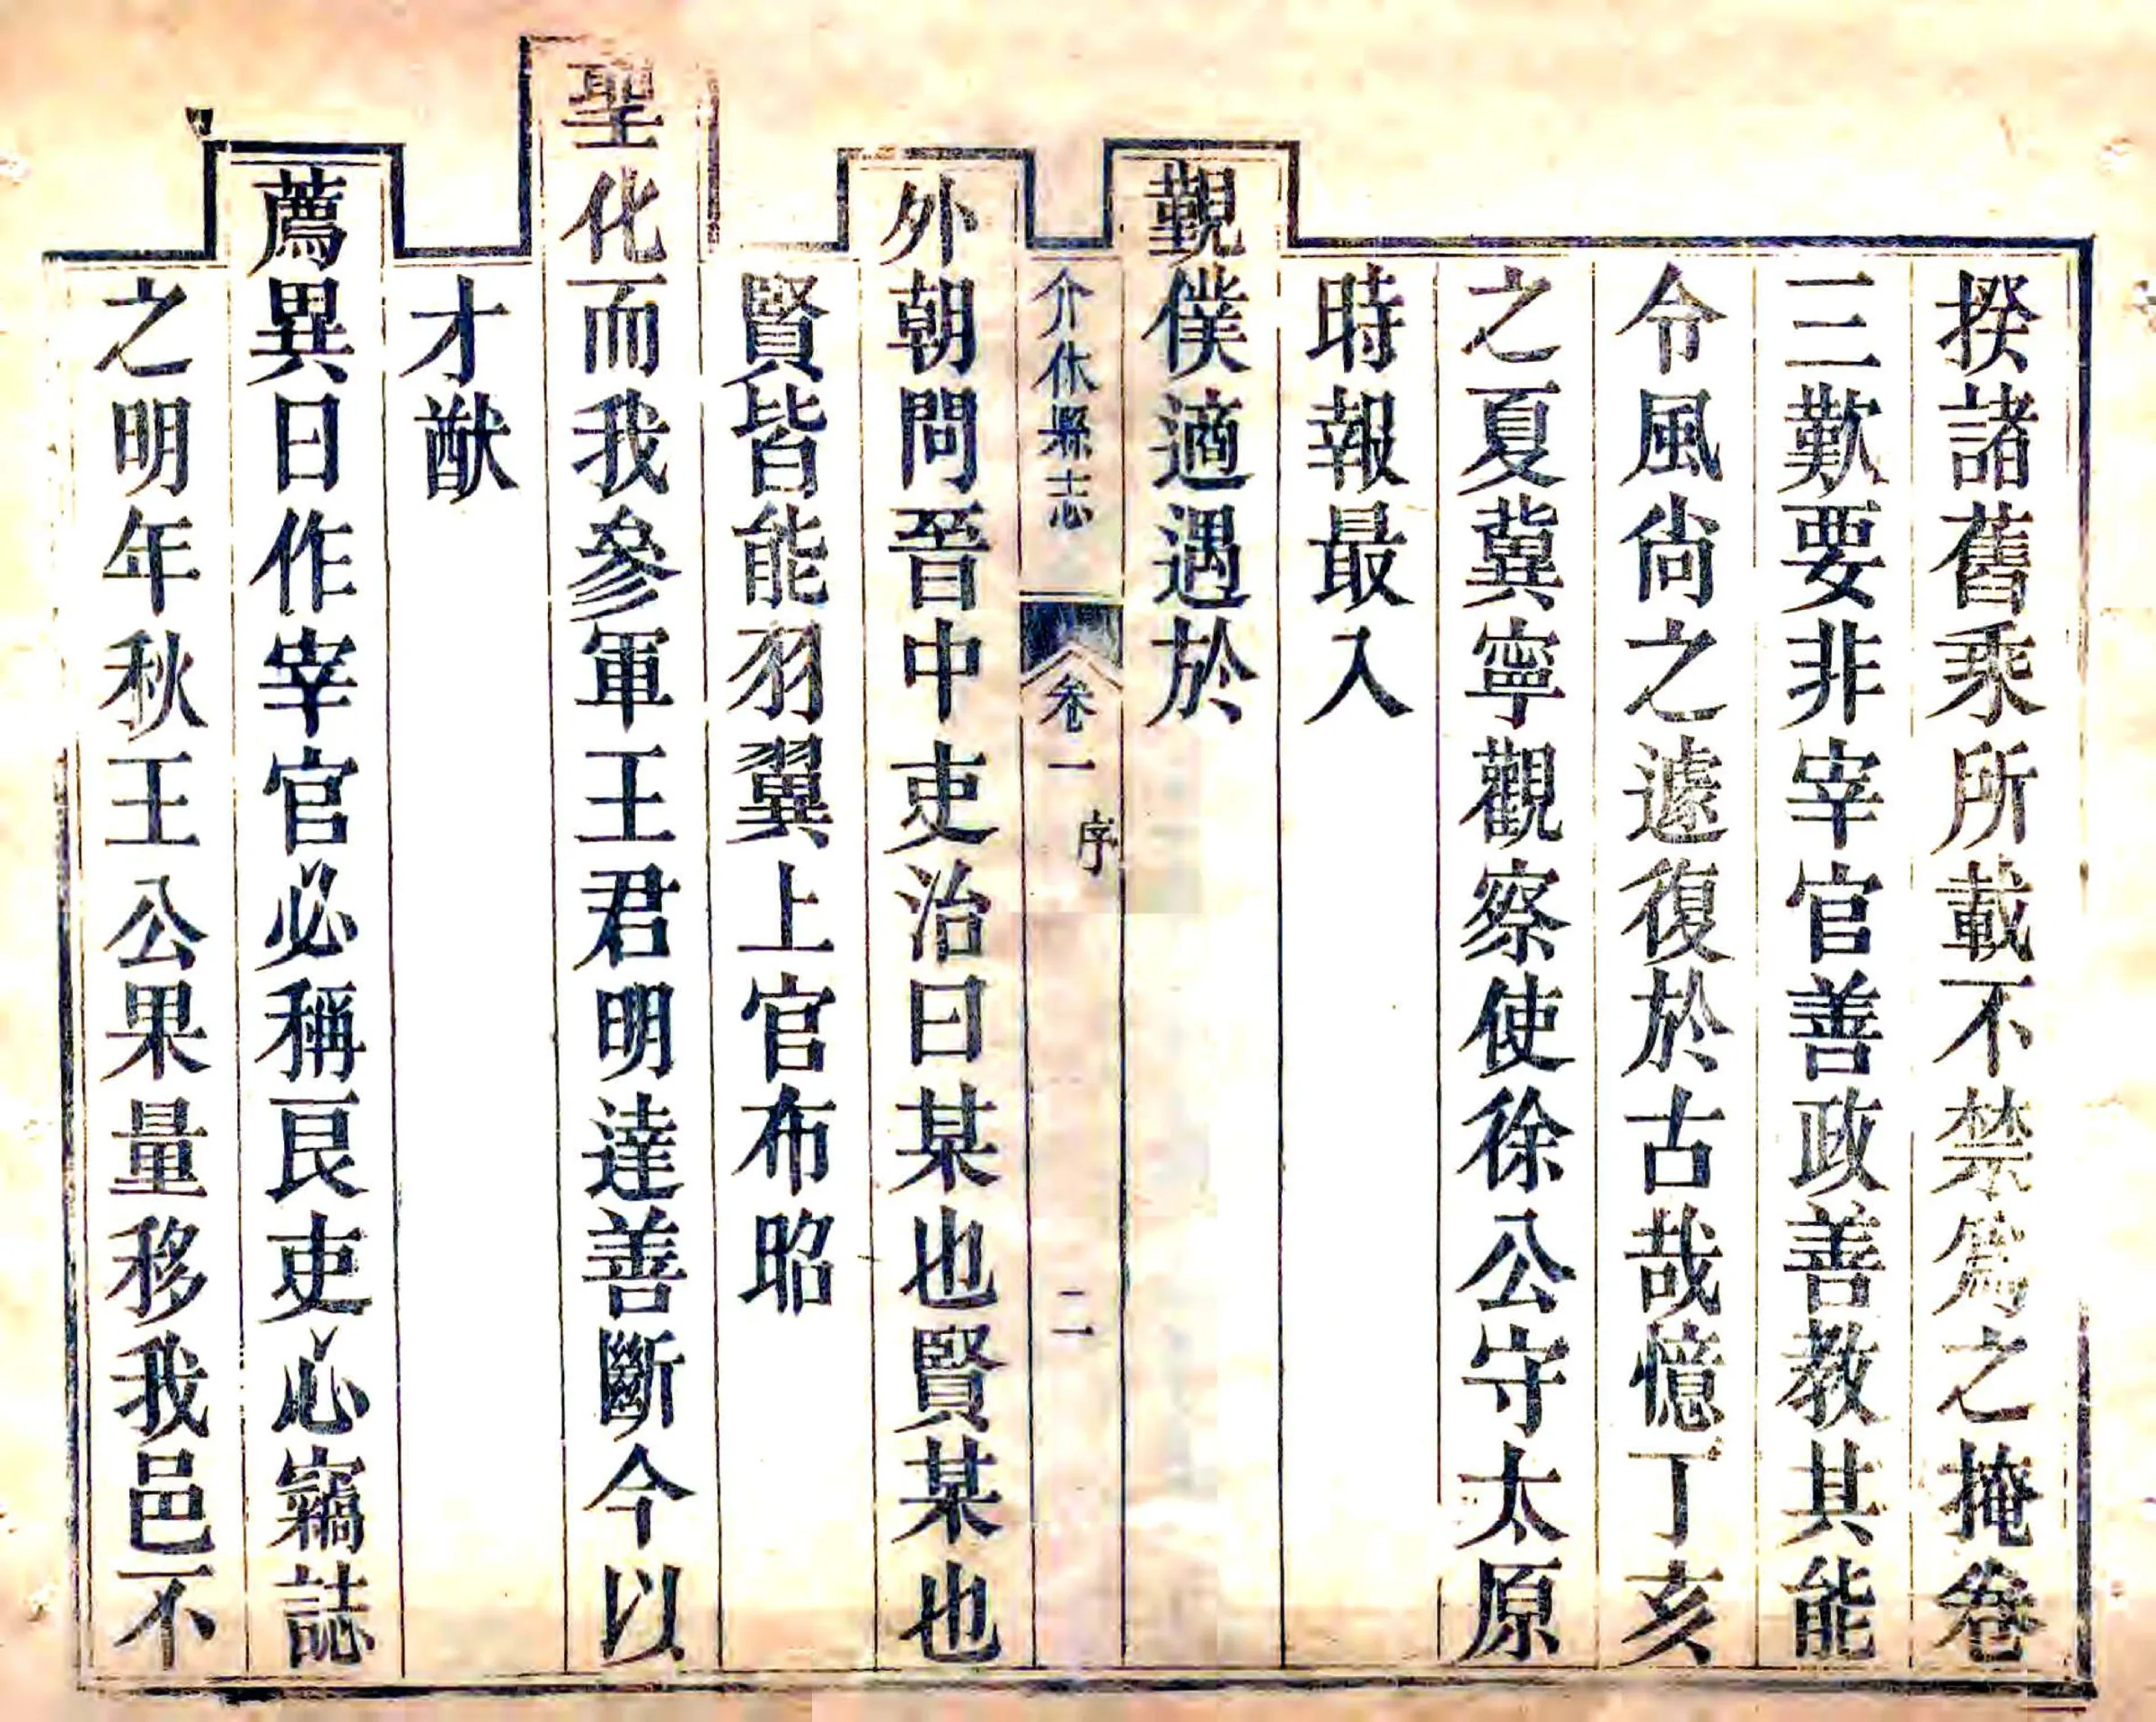 揆諸舊乘所載不禁為之掩卷
三歎要非宰官善政善教其能
令風尚之遽復於古哉憶丁亥
之夏冀寧觀察使徐公守太原
時報最入
覲僕適遇於
介休縣志 卷一 序 二
外朝問晉中吏治曰某也賢某也
賢皆能羽翼上官布昭
聖化而我參軍王君明達善斷今以
才猷
薦異日作宰官必稱良吏心竊誌
之明年秋王公果量移我邑不